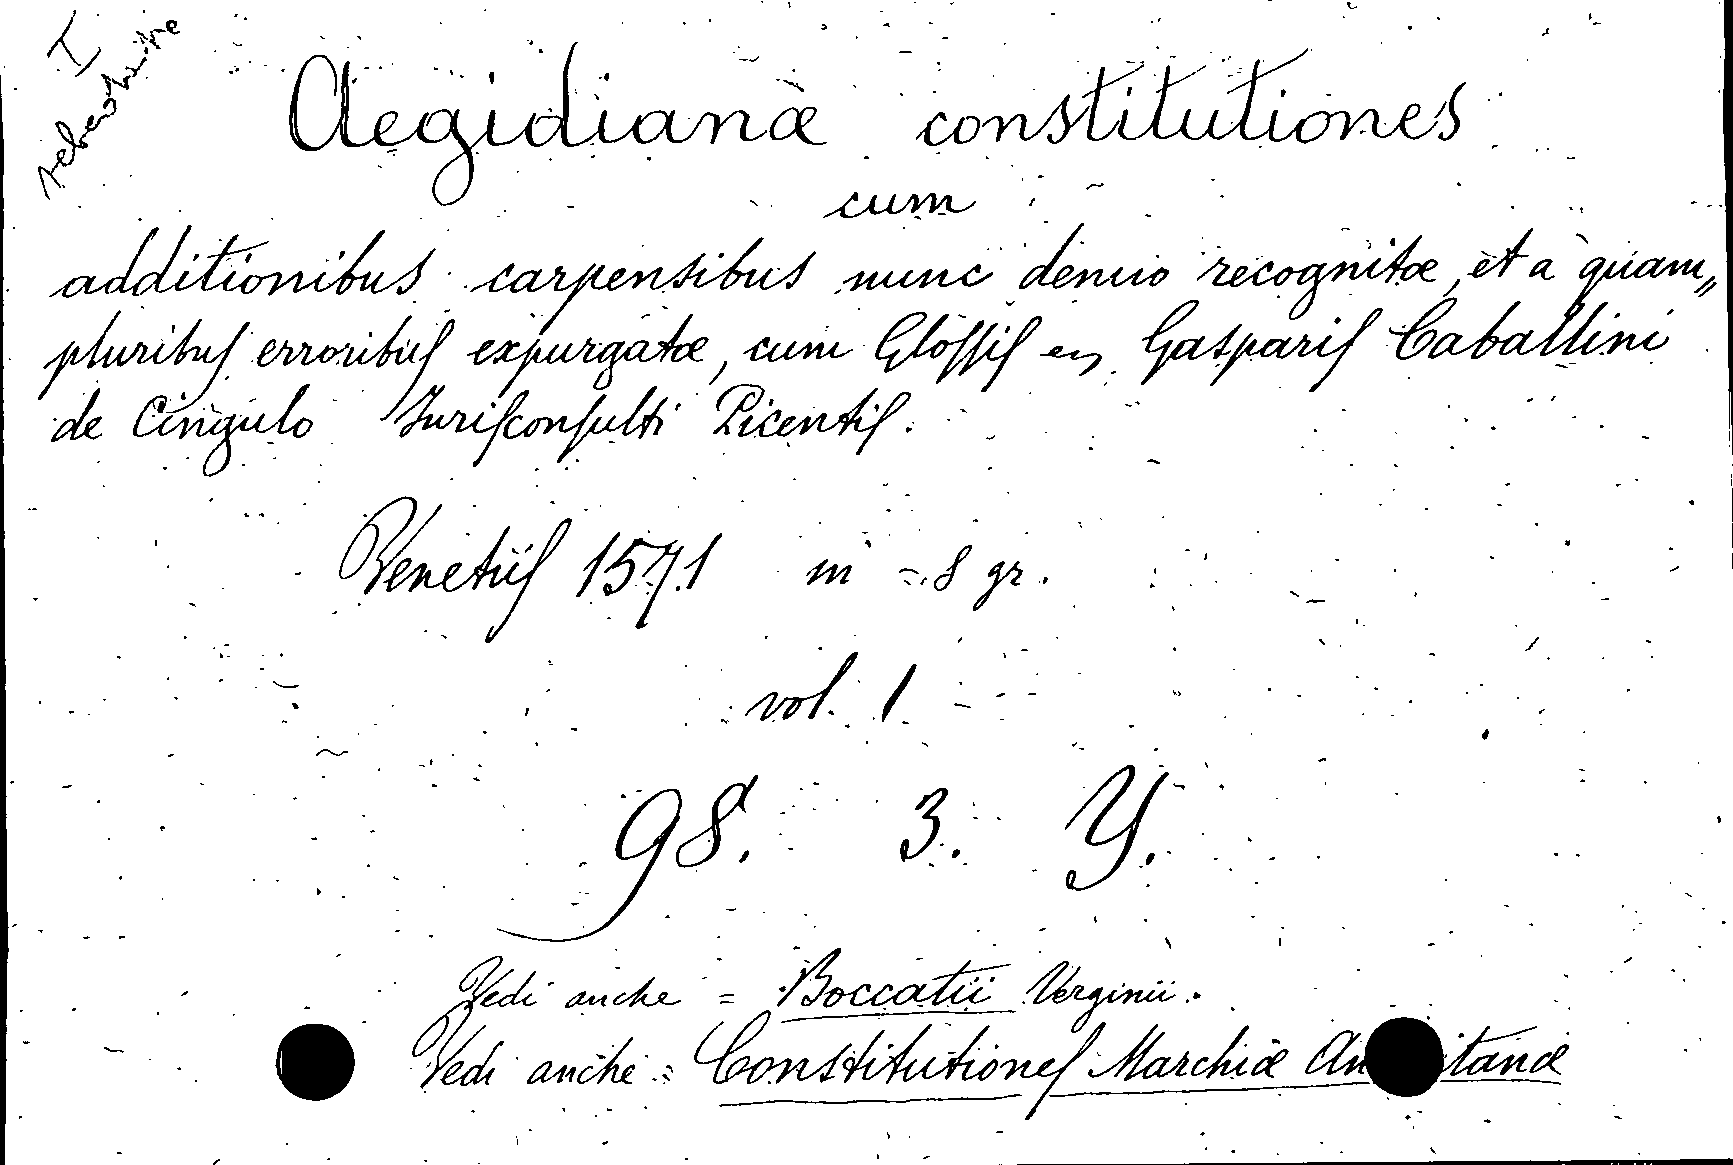 I
Aegidianæ constitutiones
cum
additionibus carpensibus nunc denuo recognitæ, et a quam„
pluribus erroribus expurgatæ, cum Glossis Gasparis Caballini
de Cingulo Jurisconsulti Picentis.
Venetiis 1571 in = 8 gr.
vol. 1
98. 3. Y.
Vedi anche = Boccatii Verginii.
Vedi anche = Constitutiones Marchiæ An itanæ